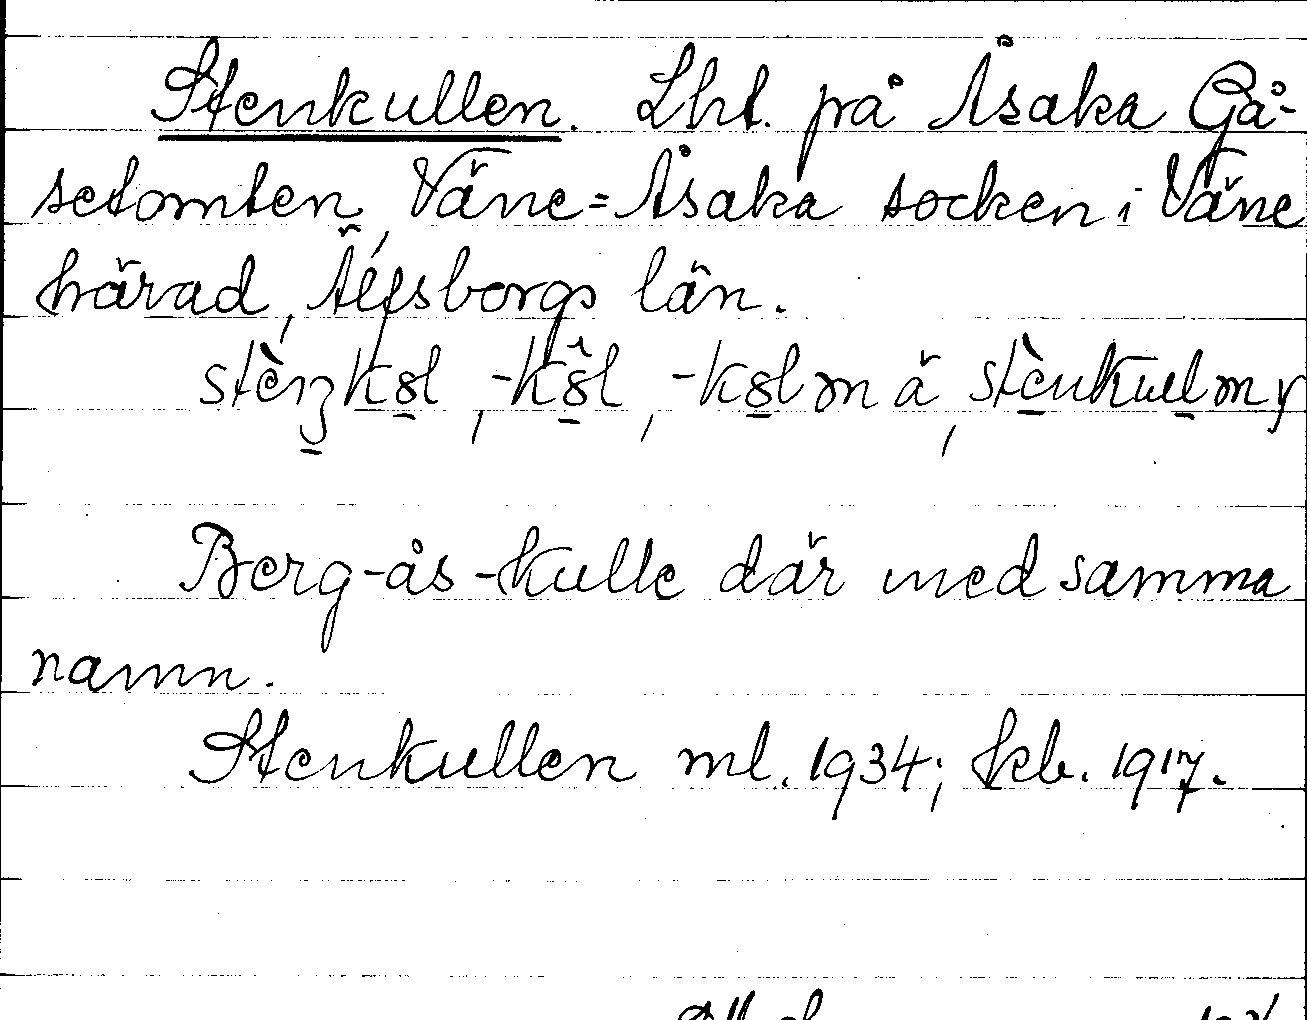 Stenkullen. Lht. på Åsaka Gå-
setomten, Väne=Åsaka socken i Väne
härad, Älfsborgs län.
Berg-ås-kulle där med samma
namn.
Stenkullen ml. 1934; kb. 1917.